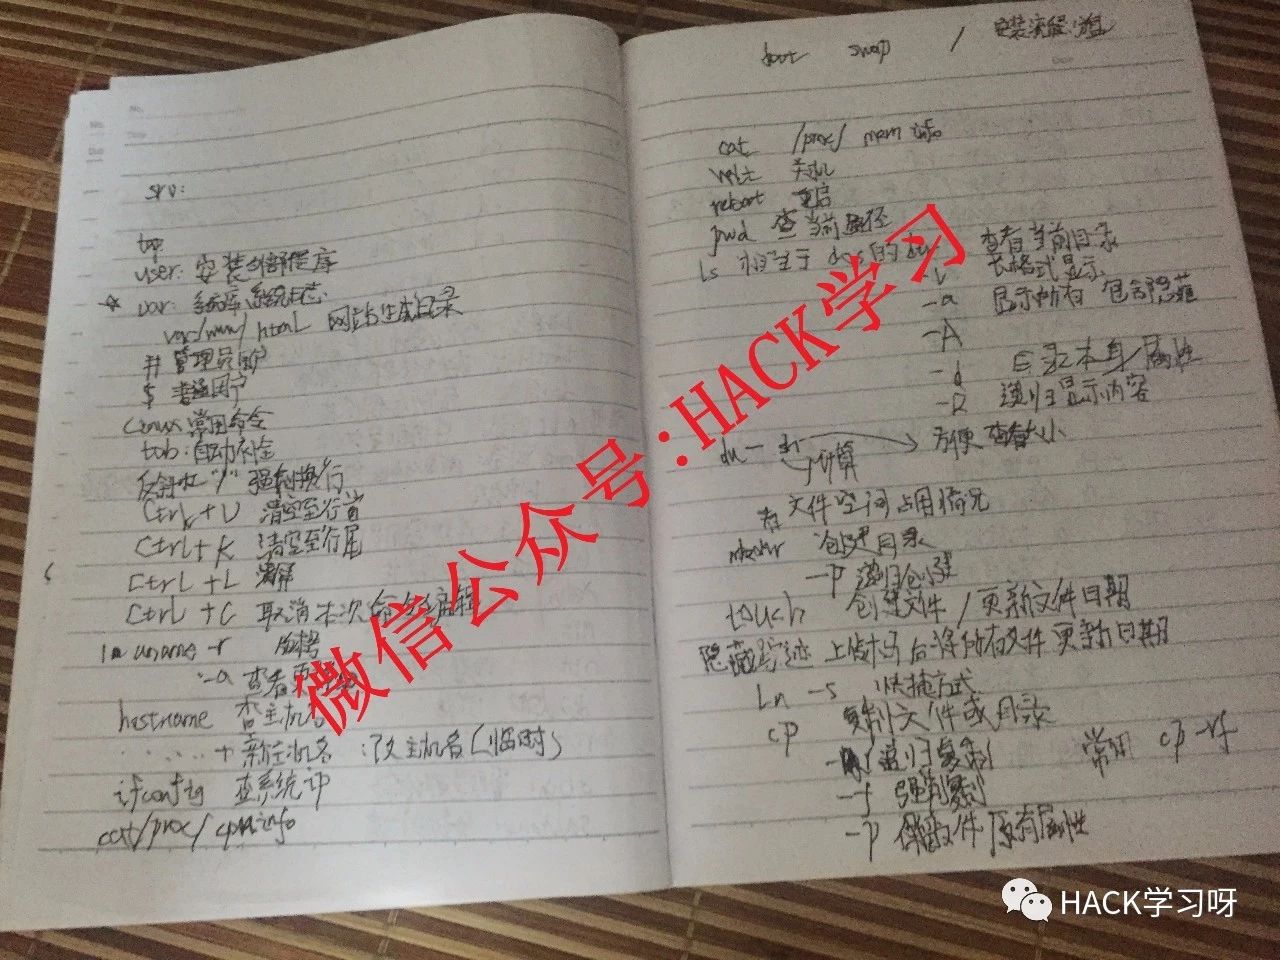 srv:
top
user: 安装外部程序
☆ var: 系统日志
var/www/html 网站生成目录
# 管理员用户
$ 普通用户
Linux常用命令
tab: 自动补全
反斜杠"/" 强制换行
Ctrl+U 清空至行首
Ctrl+K 清空至行尾
Ctrl+L 清屏
Ctrl+C 取消本次命令编辑
uname -r 版本号
-a 查看
hostname 查主机名
+ 新主机名 :改主机名(临时)
ifconfig 查系统IP
cat/proc/cpuinfo
boot swap / 安装
cat /proc/ mem info
halt 关机
reboot 重启
pwd 查当前路径
ls 相当于dos的dir 查看当前目录
-l 长格式显示
-a 显示所有 包含隐藏
-A
-d 目录本身属性
-R 递归显示内容
du - sh 方便查看大小
计算
查文件空间占用情况
mkdir 创建目录
-p 递归创建
touch 创建文件/更新文件日期
隐藏踪迹 上传木马后将所有文件更新日期
ln -s 快捷方式
cp 复制文件或目录
-r 递归复制 常用 cp -rf
-f 强制复制
-p 保留文件原有属性
微信公众号:HACK学习
HACK学习呀